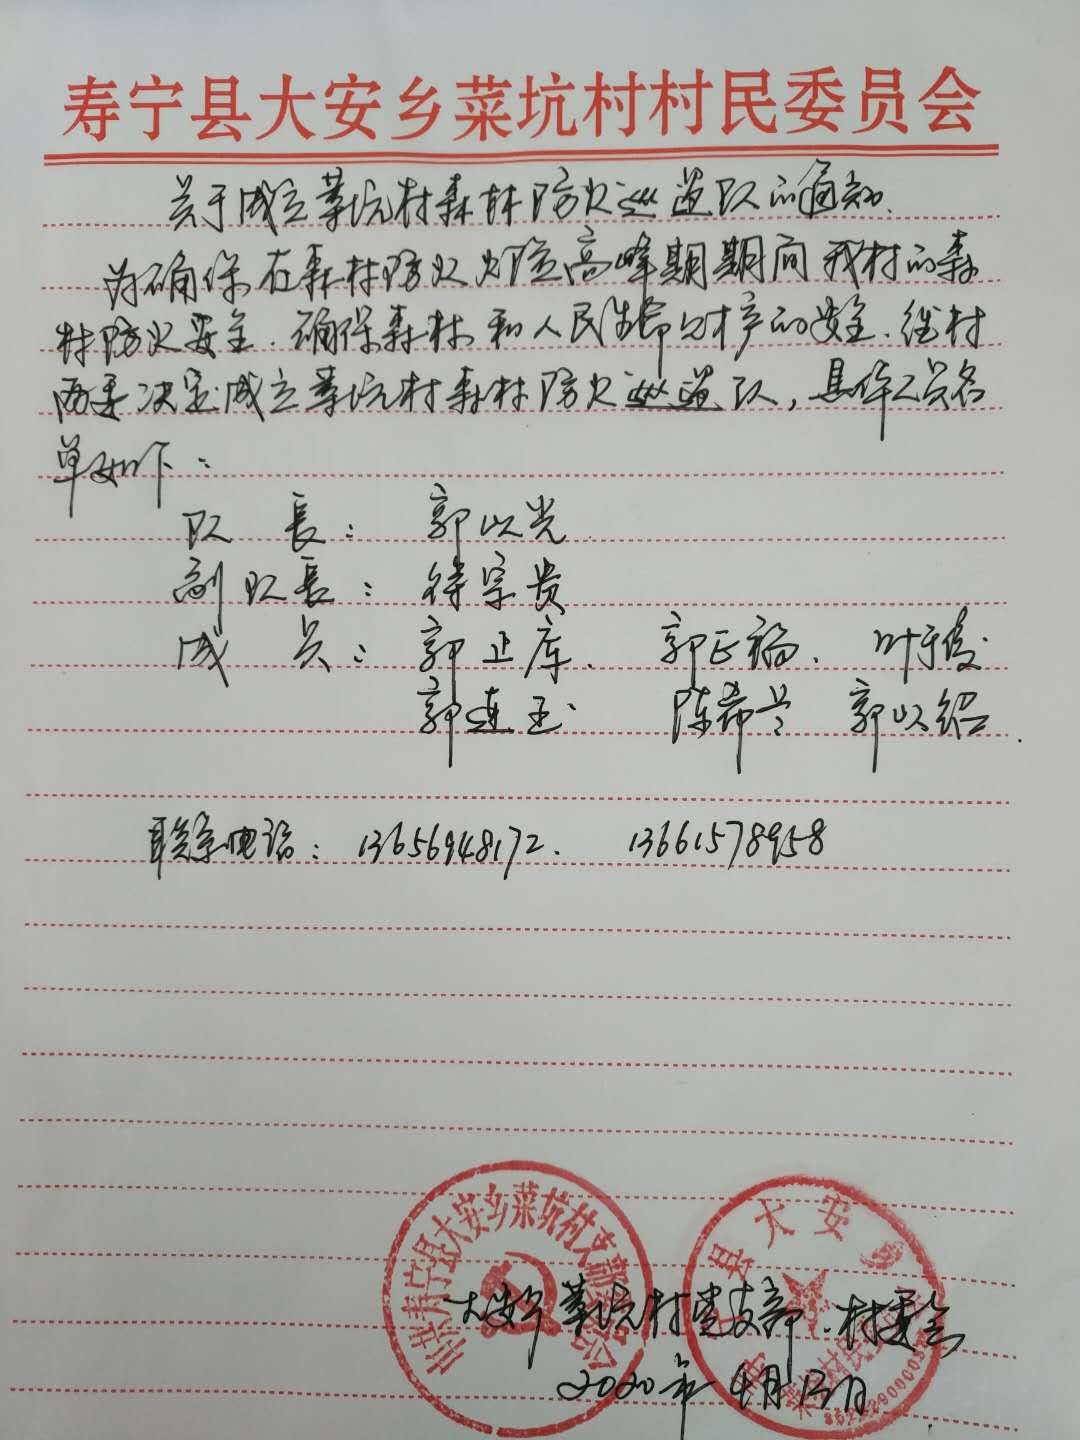 寿宁县大安乡菜坑村村民委员会
关于成立菜坑村森林防火巡逻队的通知.
为确保在森林防火火险高峰期期间我村的森
林防火安全.确保森林和人民生命与财产的安全.经村
两委决定成立菜坑村森林防火巡逻队,具体人员名
单如下:
队 長: 郭以光
副队長: 宗贵
成 员: 郭正库. 郭正福. 叶
郭连玉 陈希兰 郭以绍.
联系电话: 13656948172. 13661578958
中共寿宁县大安乡菜坑村支部委员会
县大安
大安乡菜坑村党支部.村委会
2020年4月13日